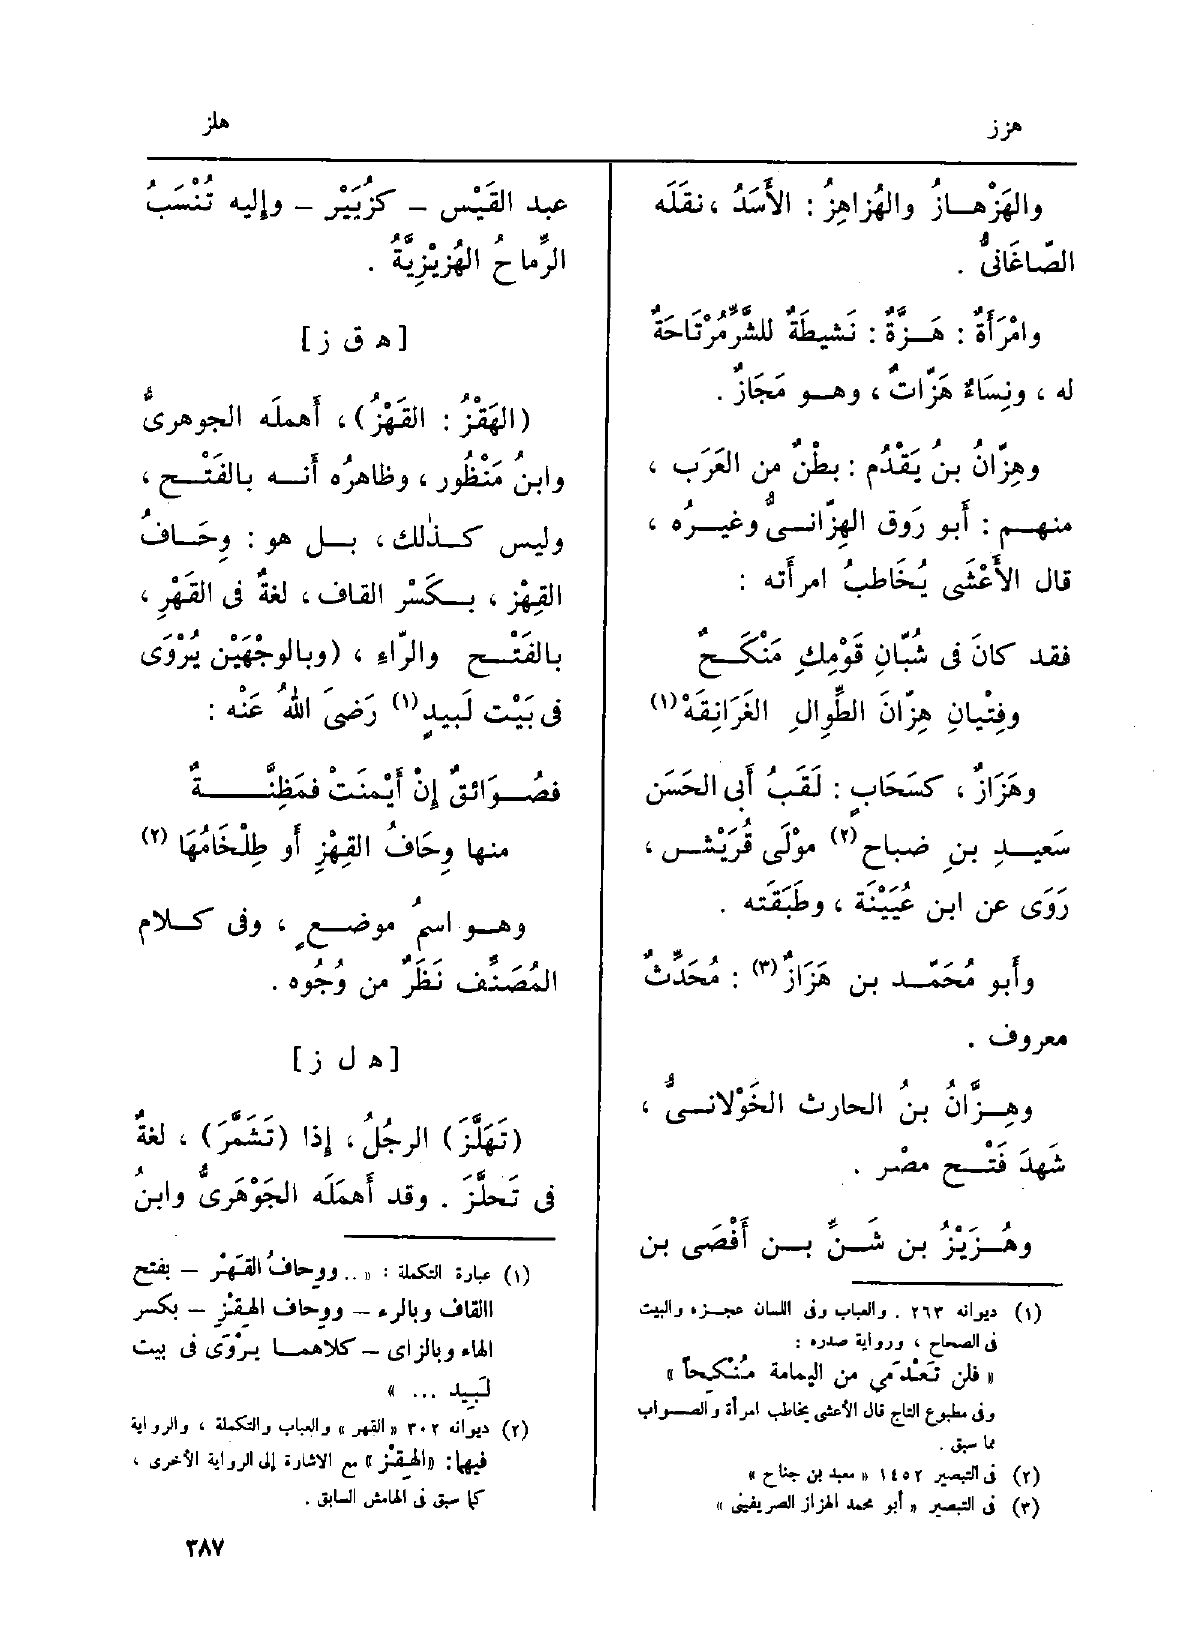 هزز
هلز
والهَزْهـازُ والهُزاهِزُ : الأَسَدُ ، نقَلَه
الصّاغَانىُّ .
وامْرَأَةٌ : هَـزَّةٌ : نَشِيطَةٌ للشَّرِّ مُرْتَاحَةٌ
له ، ونِسَاءٌ هَزّاتٌ ، وهـو مَجَازٌ .
وهِزّانُ بنُ يَقْدُم : بطْنٌ من العَرَب ،
منهـم : أَبو رَوْق الهِزّانـىُّ وغيـرُه ،
قال الأَعْشَى يُخَاطبُ امرأَته :
فقد كانَ فى شُبّانِ قَوْمِكِ مَنْكَـحٌ
وفِتْيانِ هِزّانَ الطِّوالِ الغَرَانِقَهْ (١)
وهَزَازٌ ، كسَحَابٍ : لَقَبُ أَبى الحَسَن
سَعيـدِ بنِ ضباح (٢) موْلَى قُرَيْشـ ،
رَوَى عن ابن عُيَيْنَة ، وطَبَقَته .
وأَبو مُحَمَّـد بن هَزَازٌ (٣) : مُحَدِّثٌ
معروف .
وهِـزَّانُ بنُ الحارث الخَوْلانـىُّ ،
شَهِدَ فَتْـحَ مصْر .
وهُـزَيْزُ بن شَـنِّ بـن أَفْصَى بن
(١) ديوانه ٢٦٣ . والعباب وفى اللسان عجـزه والبيت
فى الصحاح ، ورواية صدره :
« فلن تَعْدَمي من اليمامة مُنْكِيحاً »
وفى مطبوع التاج قال الأعشى يخاطب امرأة والصواب
مما سبق .
(٢) فى التبصير ١٤٥٢ « سعيد بن جناح »
(٣) فى التبصير « أبو محمد الهزاز الصريفينى »
عبد القَيْس – كزُبَيْر – وإليه تُنْسَبُ
الرِّماحُ الهُزَيْزِيَّةُ .
[ ه ق ز ]
(الهَقْزُ : القَهْزُ) ، أَهملَه الجوهرىُّ
وابنُ مَنْظُور ، وظاهرُه أَنـه بالفَتْـح ،
وليس كـذٰلك ، بـل هو : وِحَـافُ
القِهْز ، بـكَسْر القاف ، لغةٌ فى القَهْرِ ،
بالفَتْـح والرّاءِ ، (وبالوجْهَيْن يُرْوَى
فى بَيْت لَبيدٍ (١) رَضىَ اللهُ عَنْه :
فصُـوَائقٌ إنْ أَيْمنَتْ فمَظِنَّـةٌ
منها وِحَافُ القِهْزِ أَو طِلْخَامُهَا (٢)
وهـو اسمُ موضـعٍ ، وفى كـلام
المُصَنِّف نَظَرٌ من وُجُوه .
[ ه ل ز ]
(تَهَلَّزَ) الرجُلُ ، إِذا (تَشَمَّرَ) ، لغةٌ
فى تَحلَّزَ . وقد أَهمَلَه الجَوْهَرىُّ وابنُ
(١) عبارة التكملة : « .. ووحافُ القَهْرِ – بفتح
االقاف وبالرء – ووحاف الهِقْزِ – بكسر
الهاء وبالزاى – كلاهمـا يرْوَى فى بيت
لَبيد ... »
(٢) ديوانه ٣٠٢ « القهر » والعباب والتكملة ، والرواية
فيها : « الهِقْزِ » مع الاشارة إلى الرواية الأخرى ،
كما سبق فى الهامش السابق .
٣٨٧